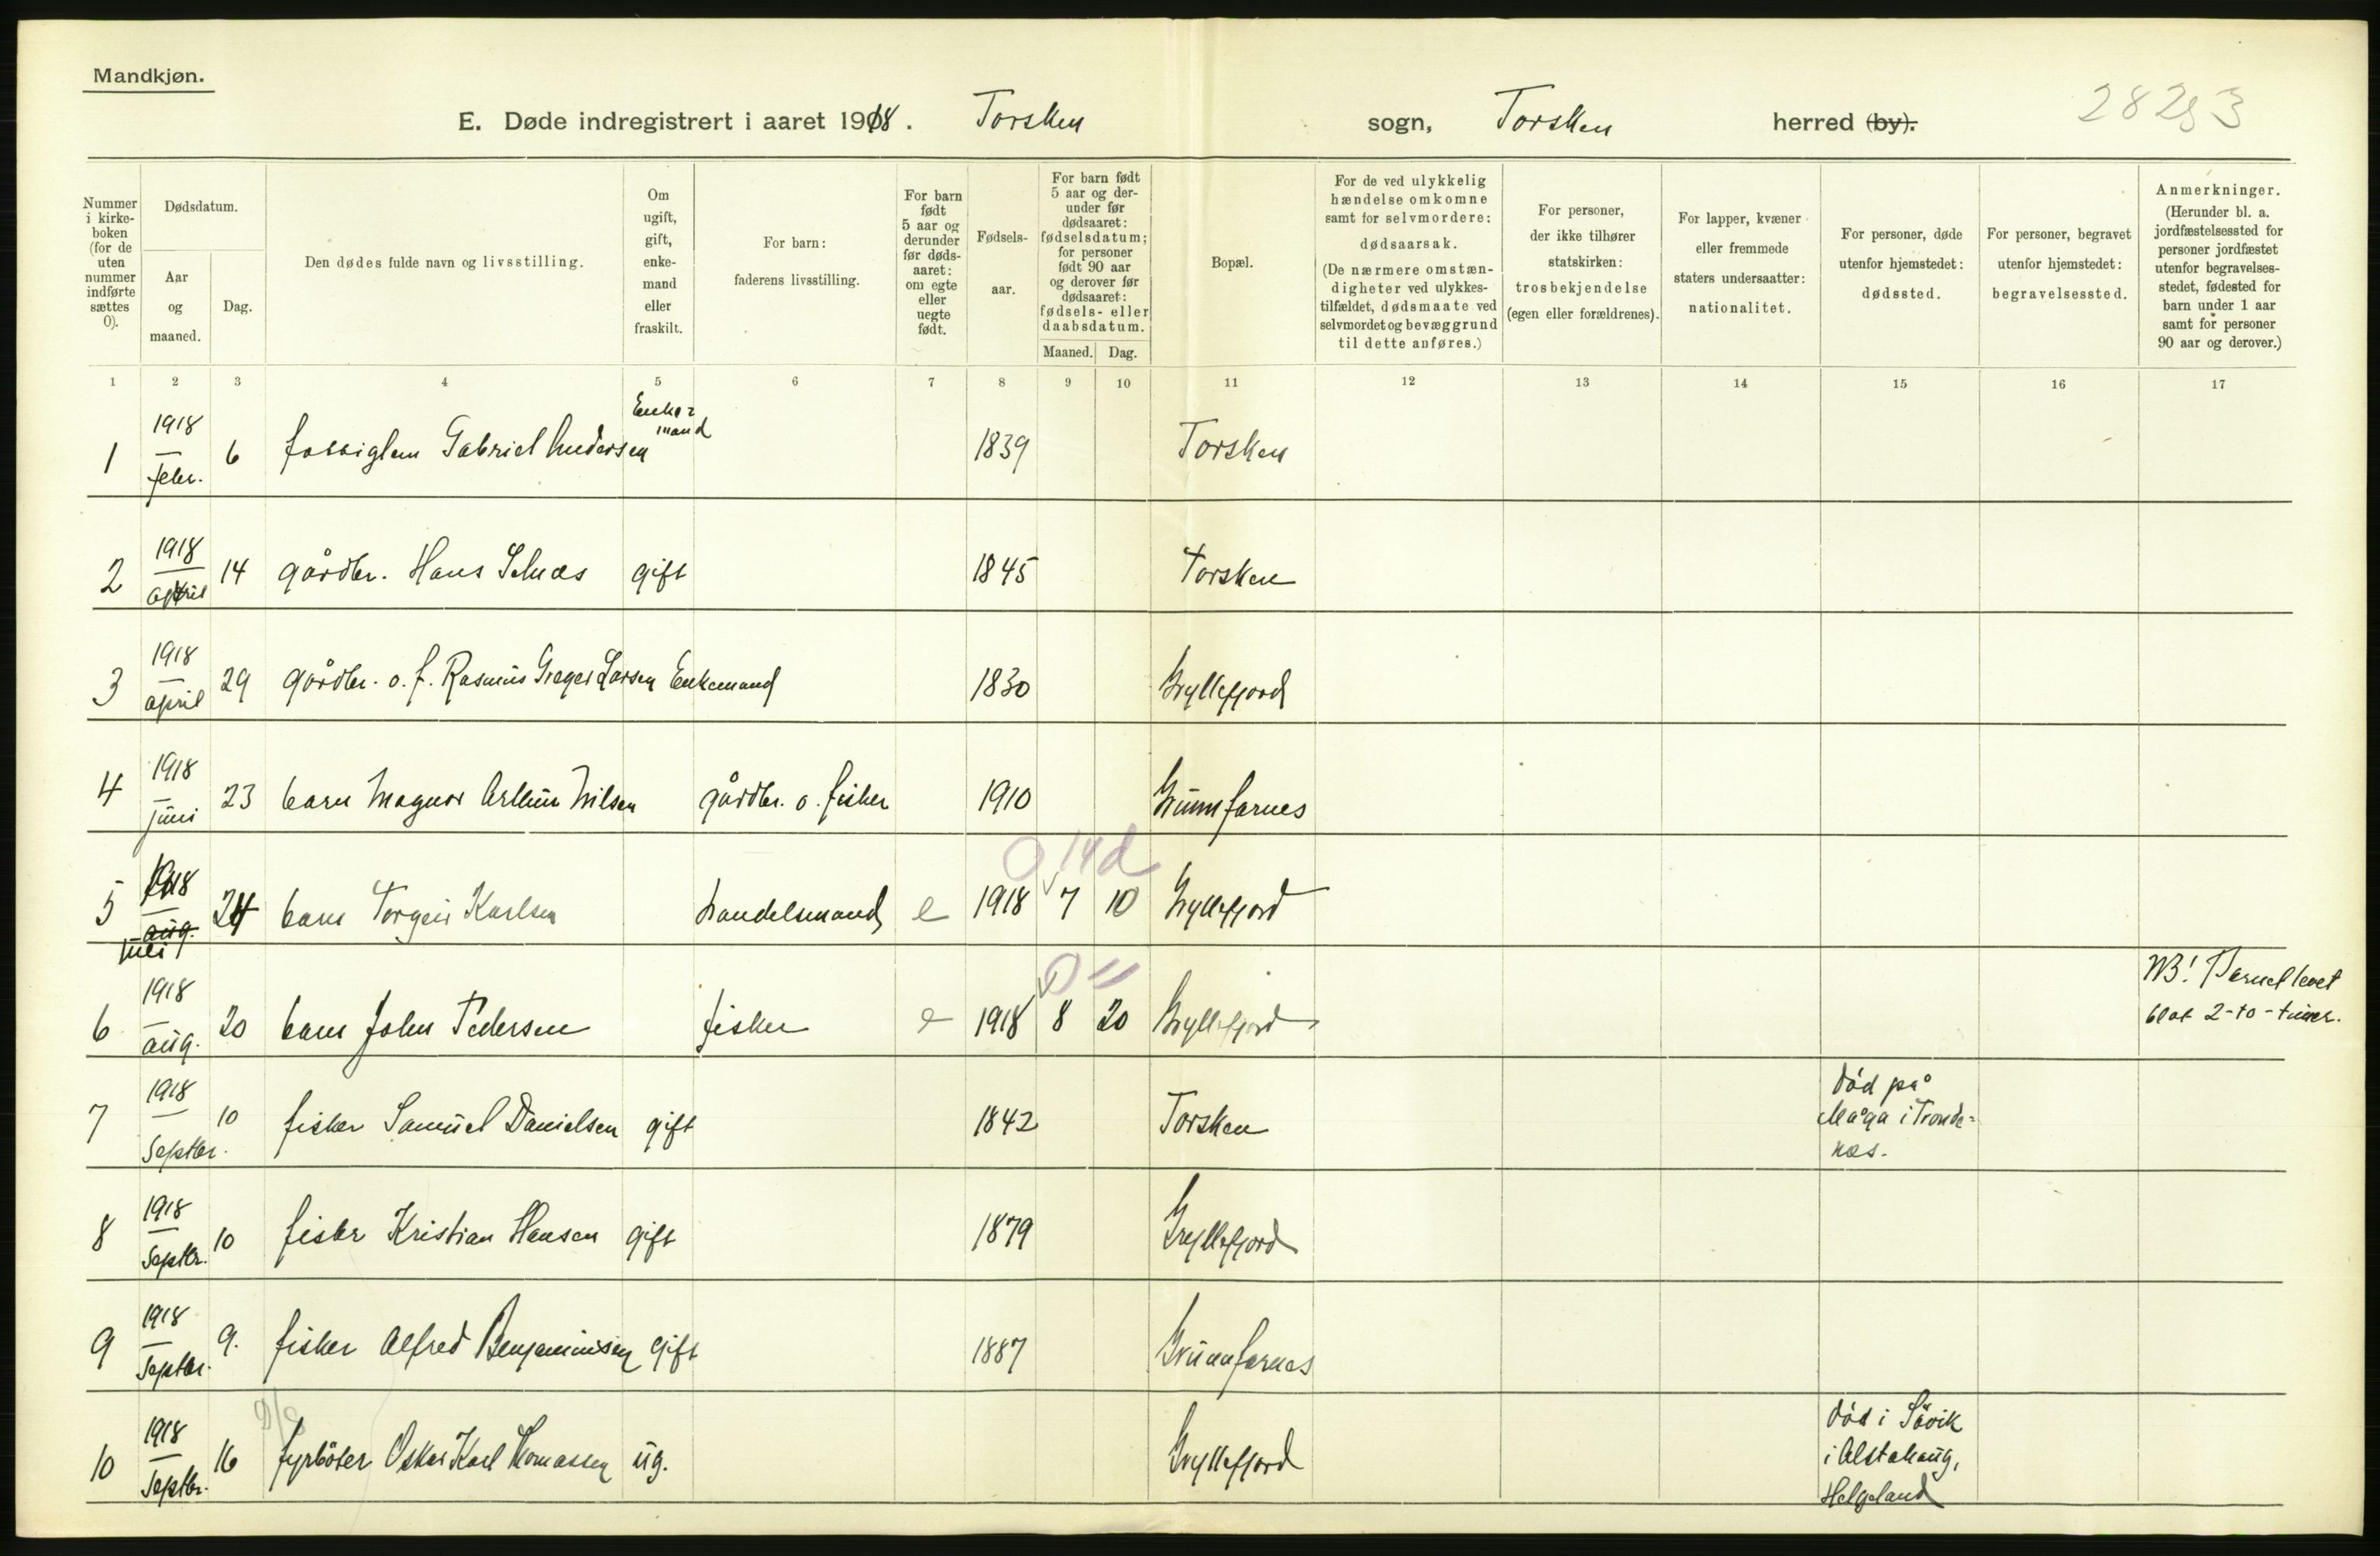 Mandkjøn.
E. Døde indregistrert i aaret 1918. Torsken sogn, Torsken herred (by).
Nummer i kirke-boken (for de uten nummer indførte sættes 0).
Dødsdatum.
Aar og maaned.
Dag.
Den dødes fulde navn og livsstilling.
Om ugift, gift, enke-mand eller fraskilt.
For barn: faderens livsstilling.
For barn født 5 aar og derunder før døds-aaret: om egte eller uegte født.
Fødsels-aar.
For barn født 5 aar og der-under før dødsaaret: fødselsdatum; for personer født 90 aar og derover før dødsaaret: fødsels- eller daabsdatum.
Maaned. Dag.
Bopæl.
For de ved ulykkelig hændelse omkomne samt for selvmordere: dødsaarsak. (De nærmere omstæn-digheter ved ulykkes-tilfældet, dødsmaate ved selvmordet og bevæggrund til dette anføres.)
For personer, der ikke tilhører statskirken: trosbekjendelse (egen eller forældrenes).
For lapper, kvæner eller fremmede staters undersaatter: nationalitet.
For personer, døde utenfor hjemstedet: dødssted.
For personer, begravet utenfor hjemstedet: begravelsessted.
Anmerkninger. (Herunder bl. a. jordfæstelsessted for personer jordfæstet utenfor begravelses-stedet, fødested for barn under 1 aar samt for personer 90 aar og derover.)
1 2 3 4 5 6 7 8 9 10 11 12 13 14 15 16 17
1 1918 febr. 6 Gabriel Andersen Enke-mand 1839 Torsken
2 1918 april 14 gårdbr. Hans Selnæs gift 1845 Torsken
3 1918 april 29 gårdbr. o. f. Rasmus Greger Larsen Enkemand 1830 Gryllefjord
4 1918 juni 23 barn Magnor Arthur Nilsen gårdbr. o. fisker 1910 Grunnfarnes
0 14d
5 1918 aug. juli 24 barn Torgeir Karlsen handelsmand e 1918 7 10 Gryllefjord
6 1918 aug. 20 barn John Pedersen fisker e 1918 8 20 Gryllefjord NB! Barnet levet
blot 2-to-timer.
7 1918 Septbr. 10 fisker Samuel Danielsen gift 1842 Torsken død på
Måga i Tronde-
næs.
8 1918 Septbr. 10 fisker Kristian Hansen gift 1879 Gryllefjord
9 1918 Septbr. 9. fisker Alfred Benjaminsen gift 1887 Grunnfarnes
10 1918 Septbr. 16 fyrbøter Oskar Karl Thomassen ug. Gryllefjord død i Søvik
i Alstahaug,
Helgeland